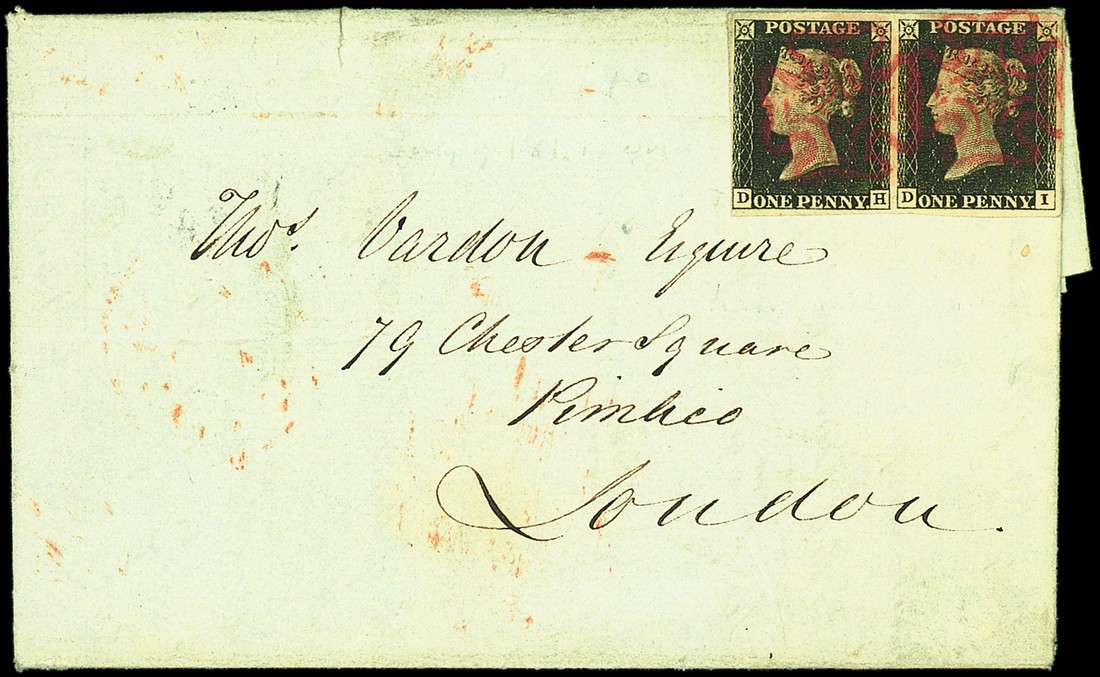 POSTAGE POSTAGE
D ONE PENNY H D ONE PENNY I
Thos. Vardon - Esquire
79 Chester Square
Pimlico
London.